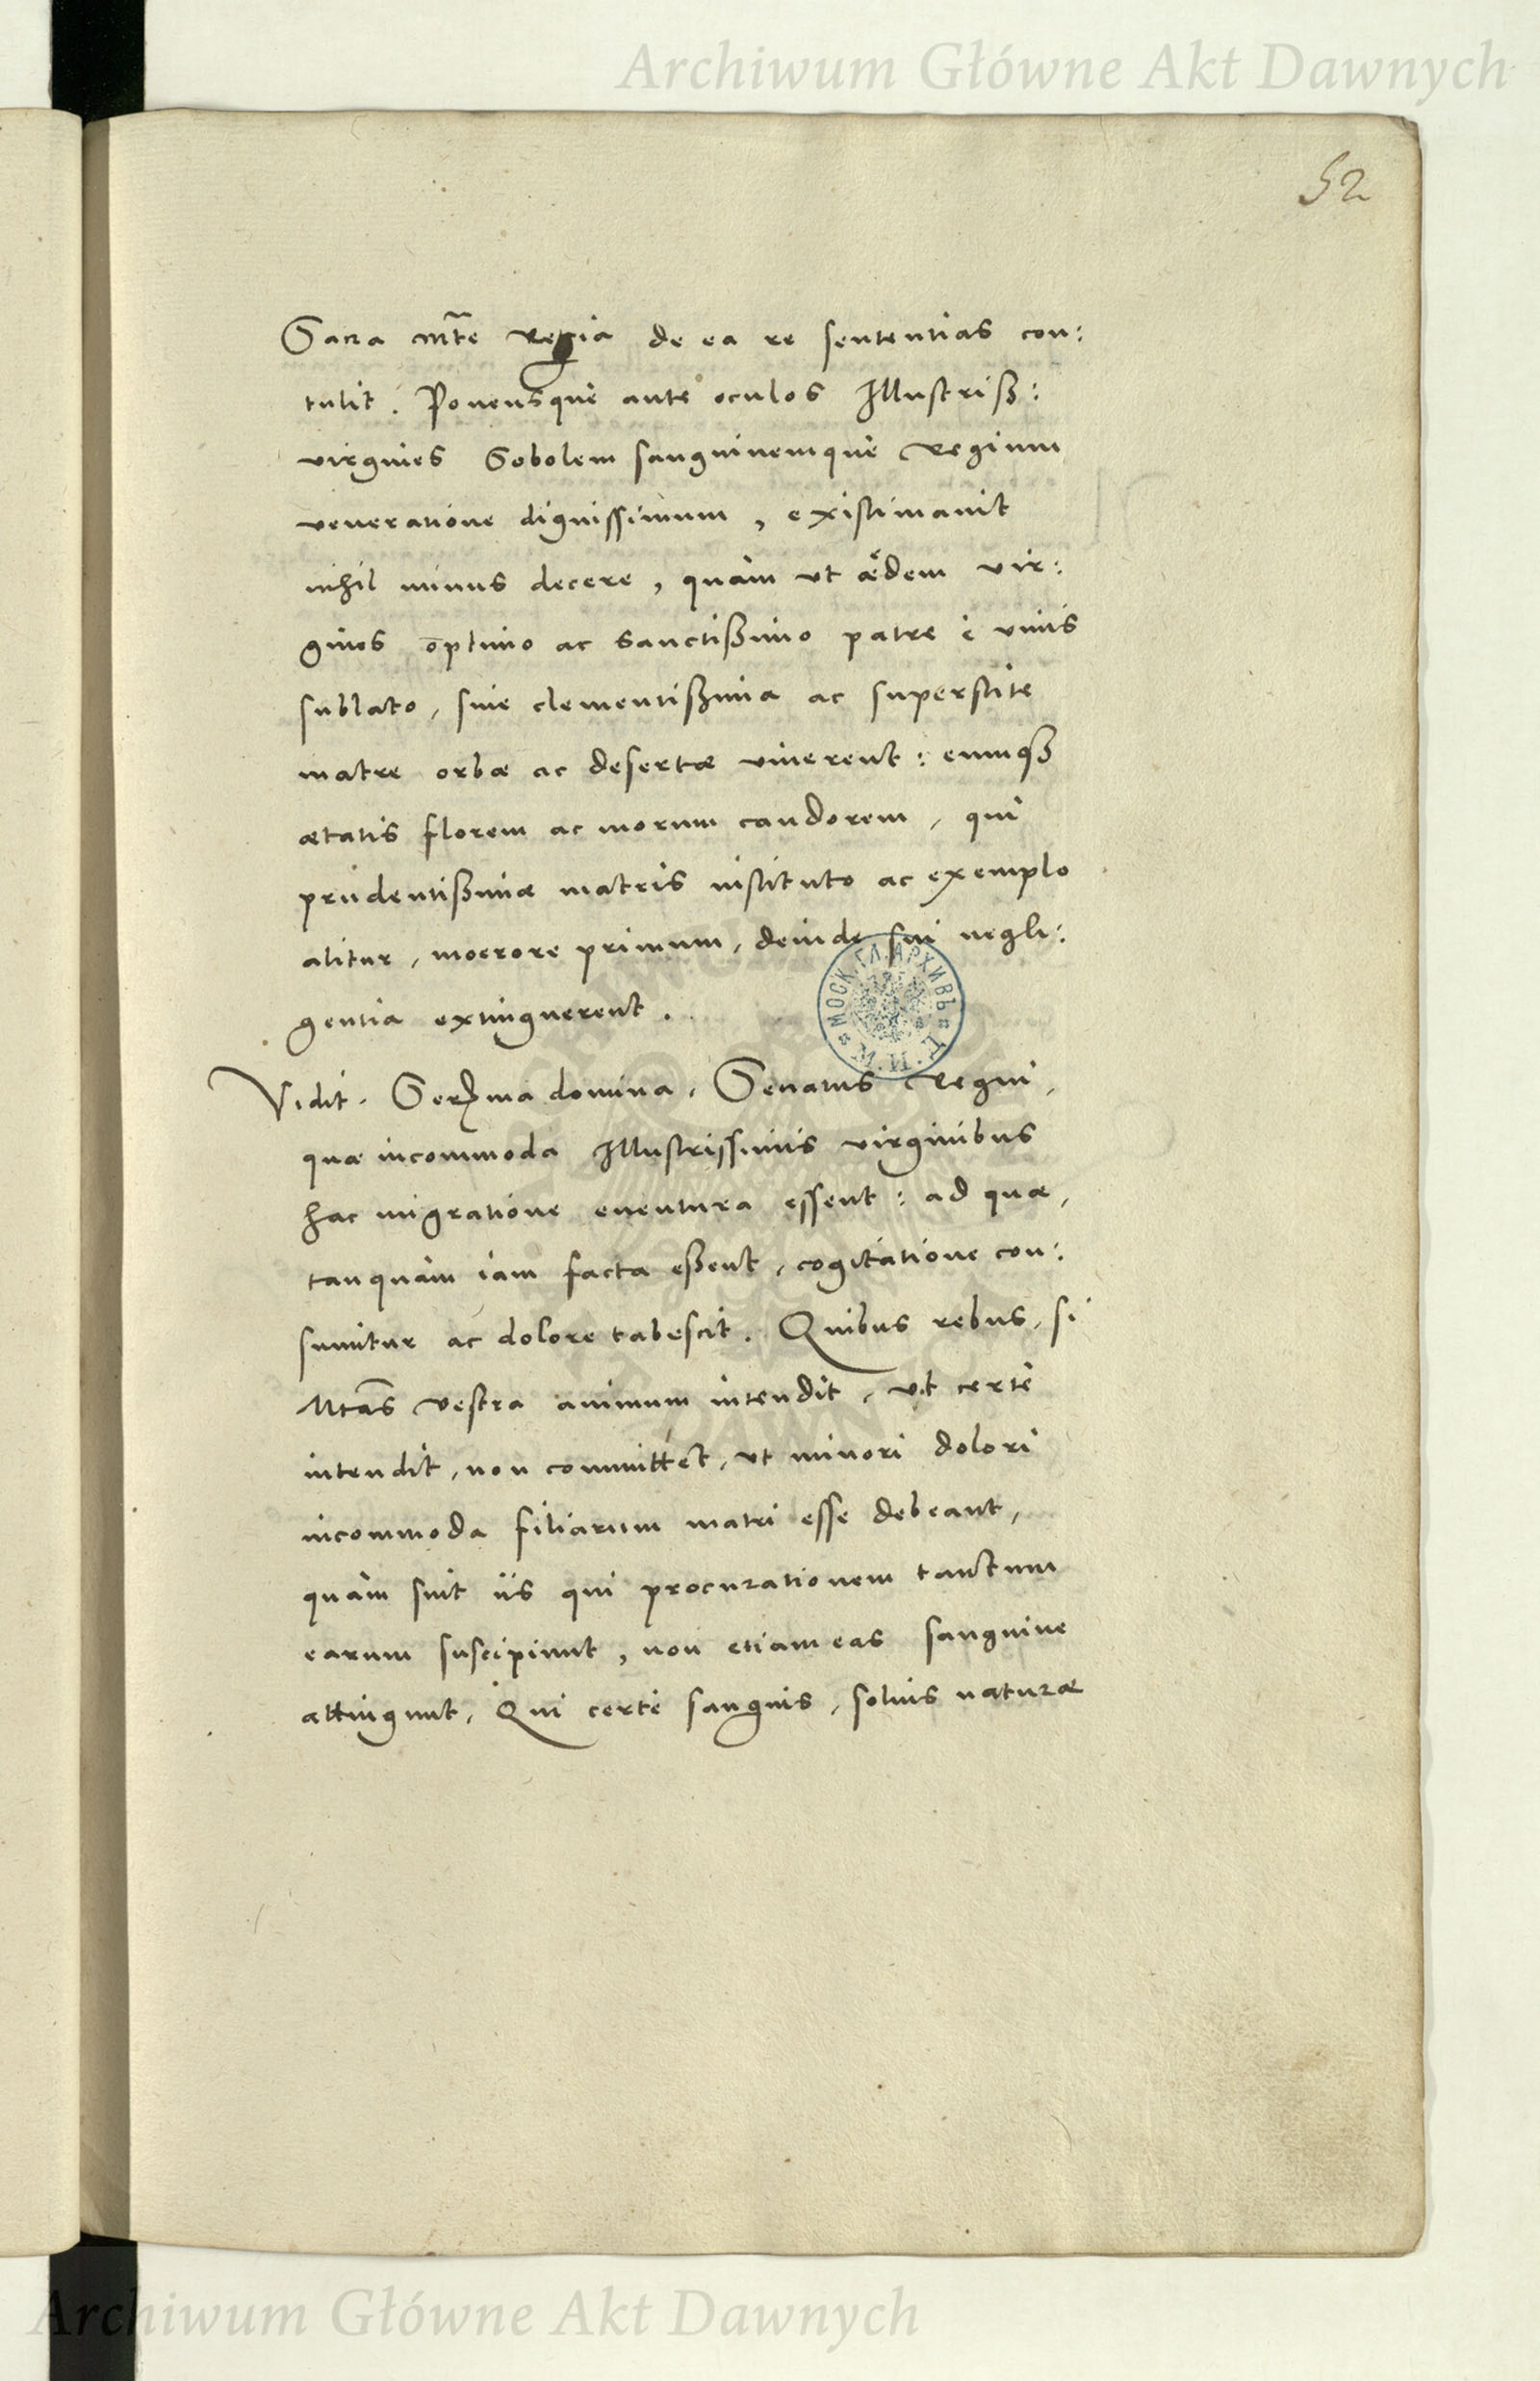 Archiwum Główne Akt Dawnych
52
Sacra Mte Regia de ea re sententias con:
tulit. Ponensque ante oculos Illustriss:
virgines Sobolem sanguinemque Regium
veneratione dignissimum, existimavit
nihil minus decere, quàm ut eædem vir:
gines optimo ac sanctissimo patre è vivis
sublato, sine clementissima ac superstite
matre orbæ ac desertæ viverent: eumque
ætatis florem ac morum candorem, qui
prudentissimæ matris instituto ac exemplo
alitur, moerore primum, deinde sui negli:
gentia extinguerent.
Vidit, Serma domina, Senatus Regni,
quæ incommoda Illustrissimis virginibus
hac migratione eventura essent: ad quæ,
tanquàm iam facta essent, cogitatione con:
sumitur ac dolore tabescit. Quibus rebus, si
Mtas vestra animum intendit, ut certè
intendit, non committet, ut minori dolori
incommoda filiarum matri esse debeant,
quàm sint iis qui procurationem tantum
earum suscipiunt, non etiam eas sanguine
attingunt. Qui certè sanguis, solius naturæ
МОСК. ГЛ. АРХИВЪ
М. И. Д.
Archiwum Główne Akt Dawnych